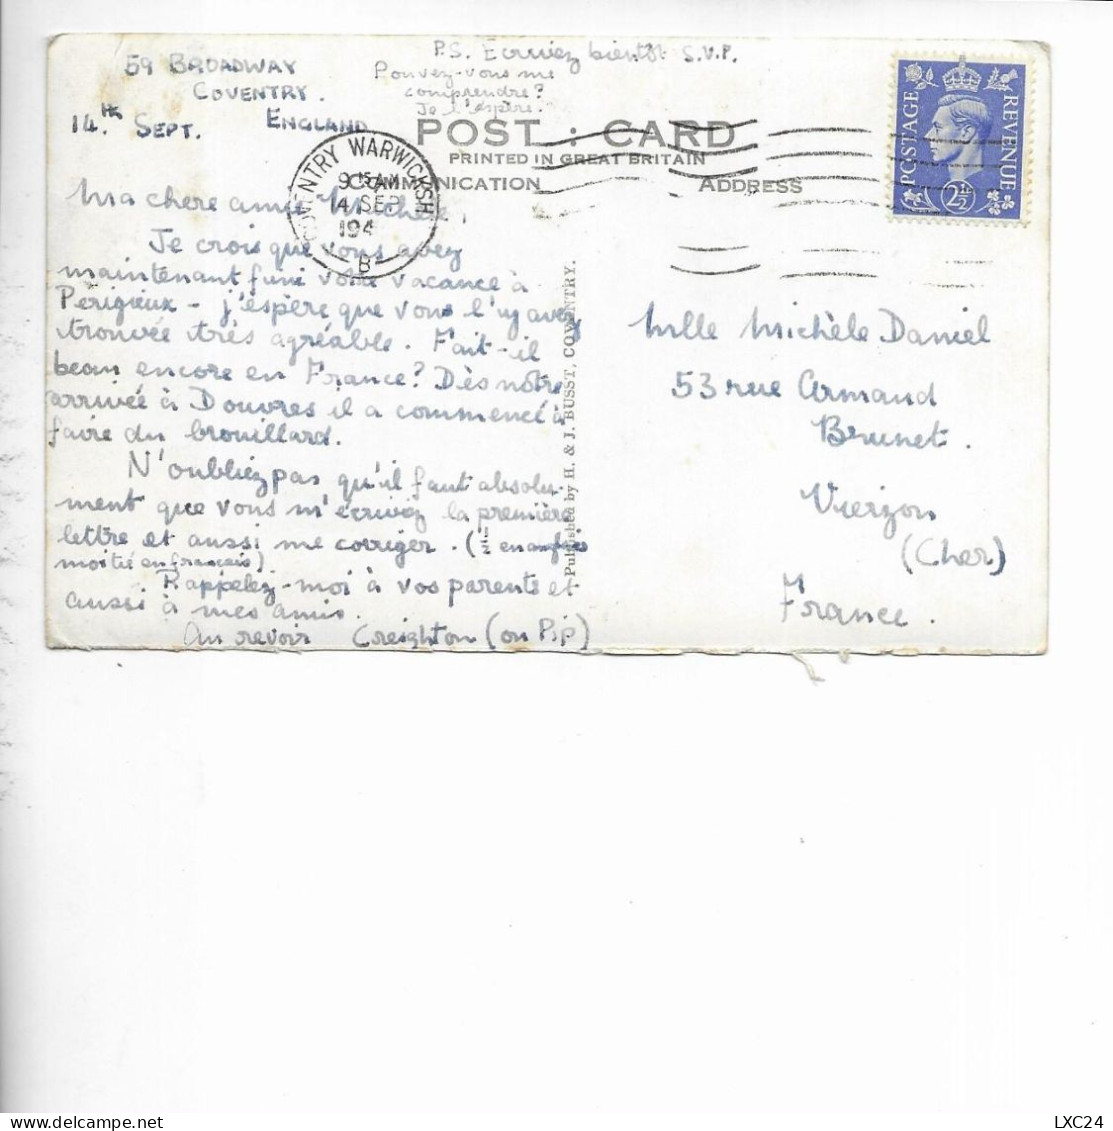 59 BROADWAY
COVENTRY.
ENGLAND
14.th SEPT.
P.S. Ecrivez bientôt S.V.P.
Pouvez-vous me
comprendre?
Je l'espère.
POST : CARD
PRINTED IN GREAT BRITAIN
COMMUNICATION
ADDRESS
COVENTRY WARWICKSH
9 15 AM
14 SEP
194
B
POSTAGE
REVENUE
2½
Ma chere amie Michèle,
Je crois que vous avez
maintenant fini votre vacance à
Périgieux - j'espère que vous l'y avez
trouvée très agréable. Fait-il
beau encore en France? Dès nôtre
arrivée à Douvres il a commencé à
faire du brouillard.
N'oubliez pas qu'il faut absolu-
ment que vous m'écrivez la première
lettre et aussi me corriger. (½ en anglais
moitié en français).
Rappelez-moi à vos parents et
aussi à mes amis.
Au revoir Creighton (ou Pip)
Published by H. & J. BUSST, COVENTRY.
Mlle Michèle Daniel
53 rue Armand
Brunet.
Vierzon
(Cher)
France.
LXC24